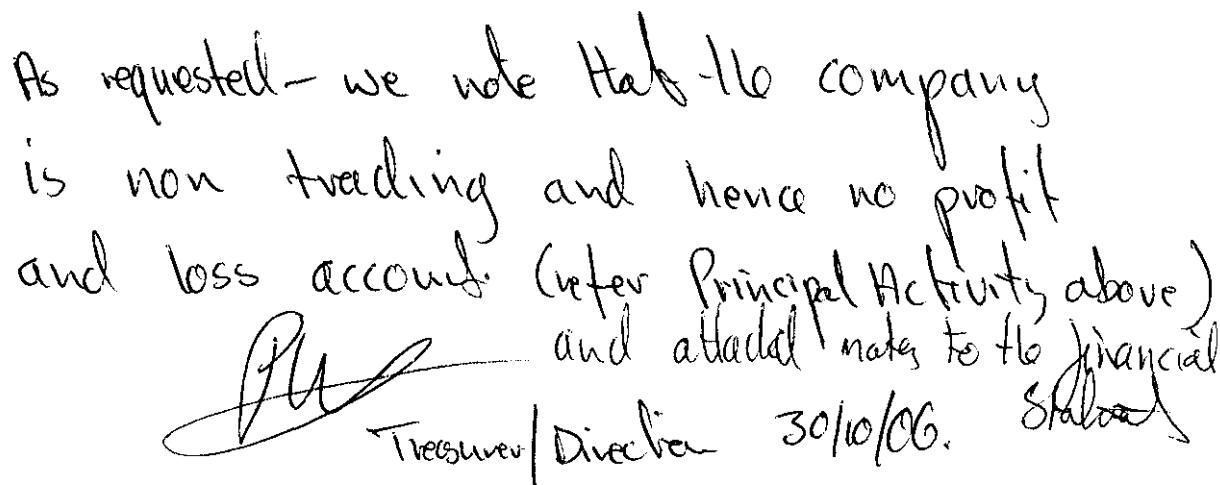 As requested - we note that the company
is non trading and hence no profit
and loss account. (refer Principal Activity above)
and attached notes to the financial
Statements
Treasurer/Director 30/10/06.